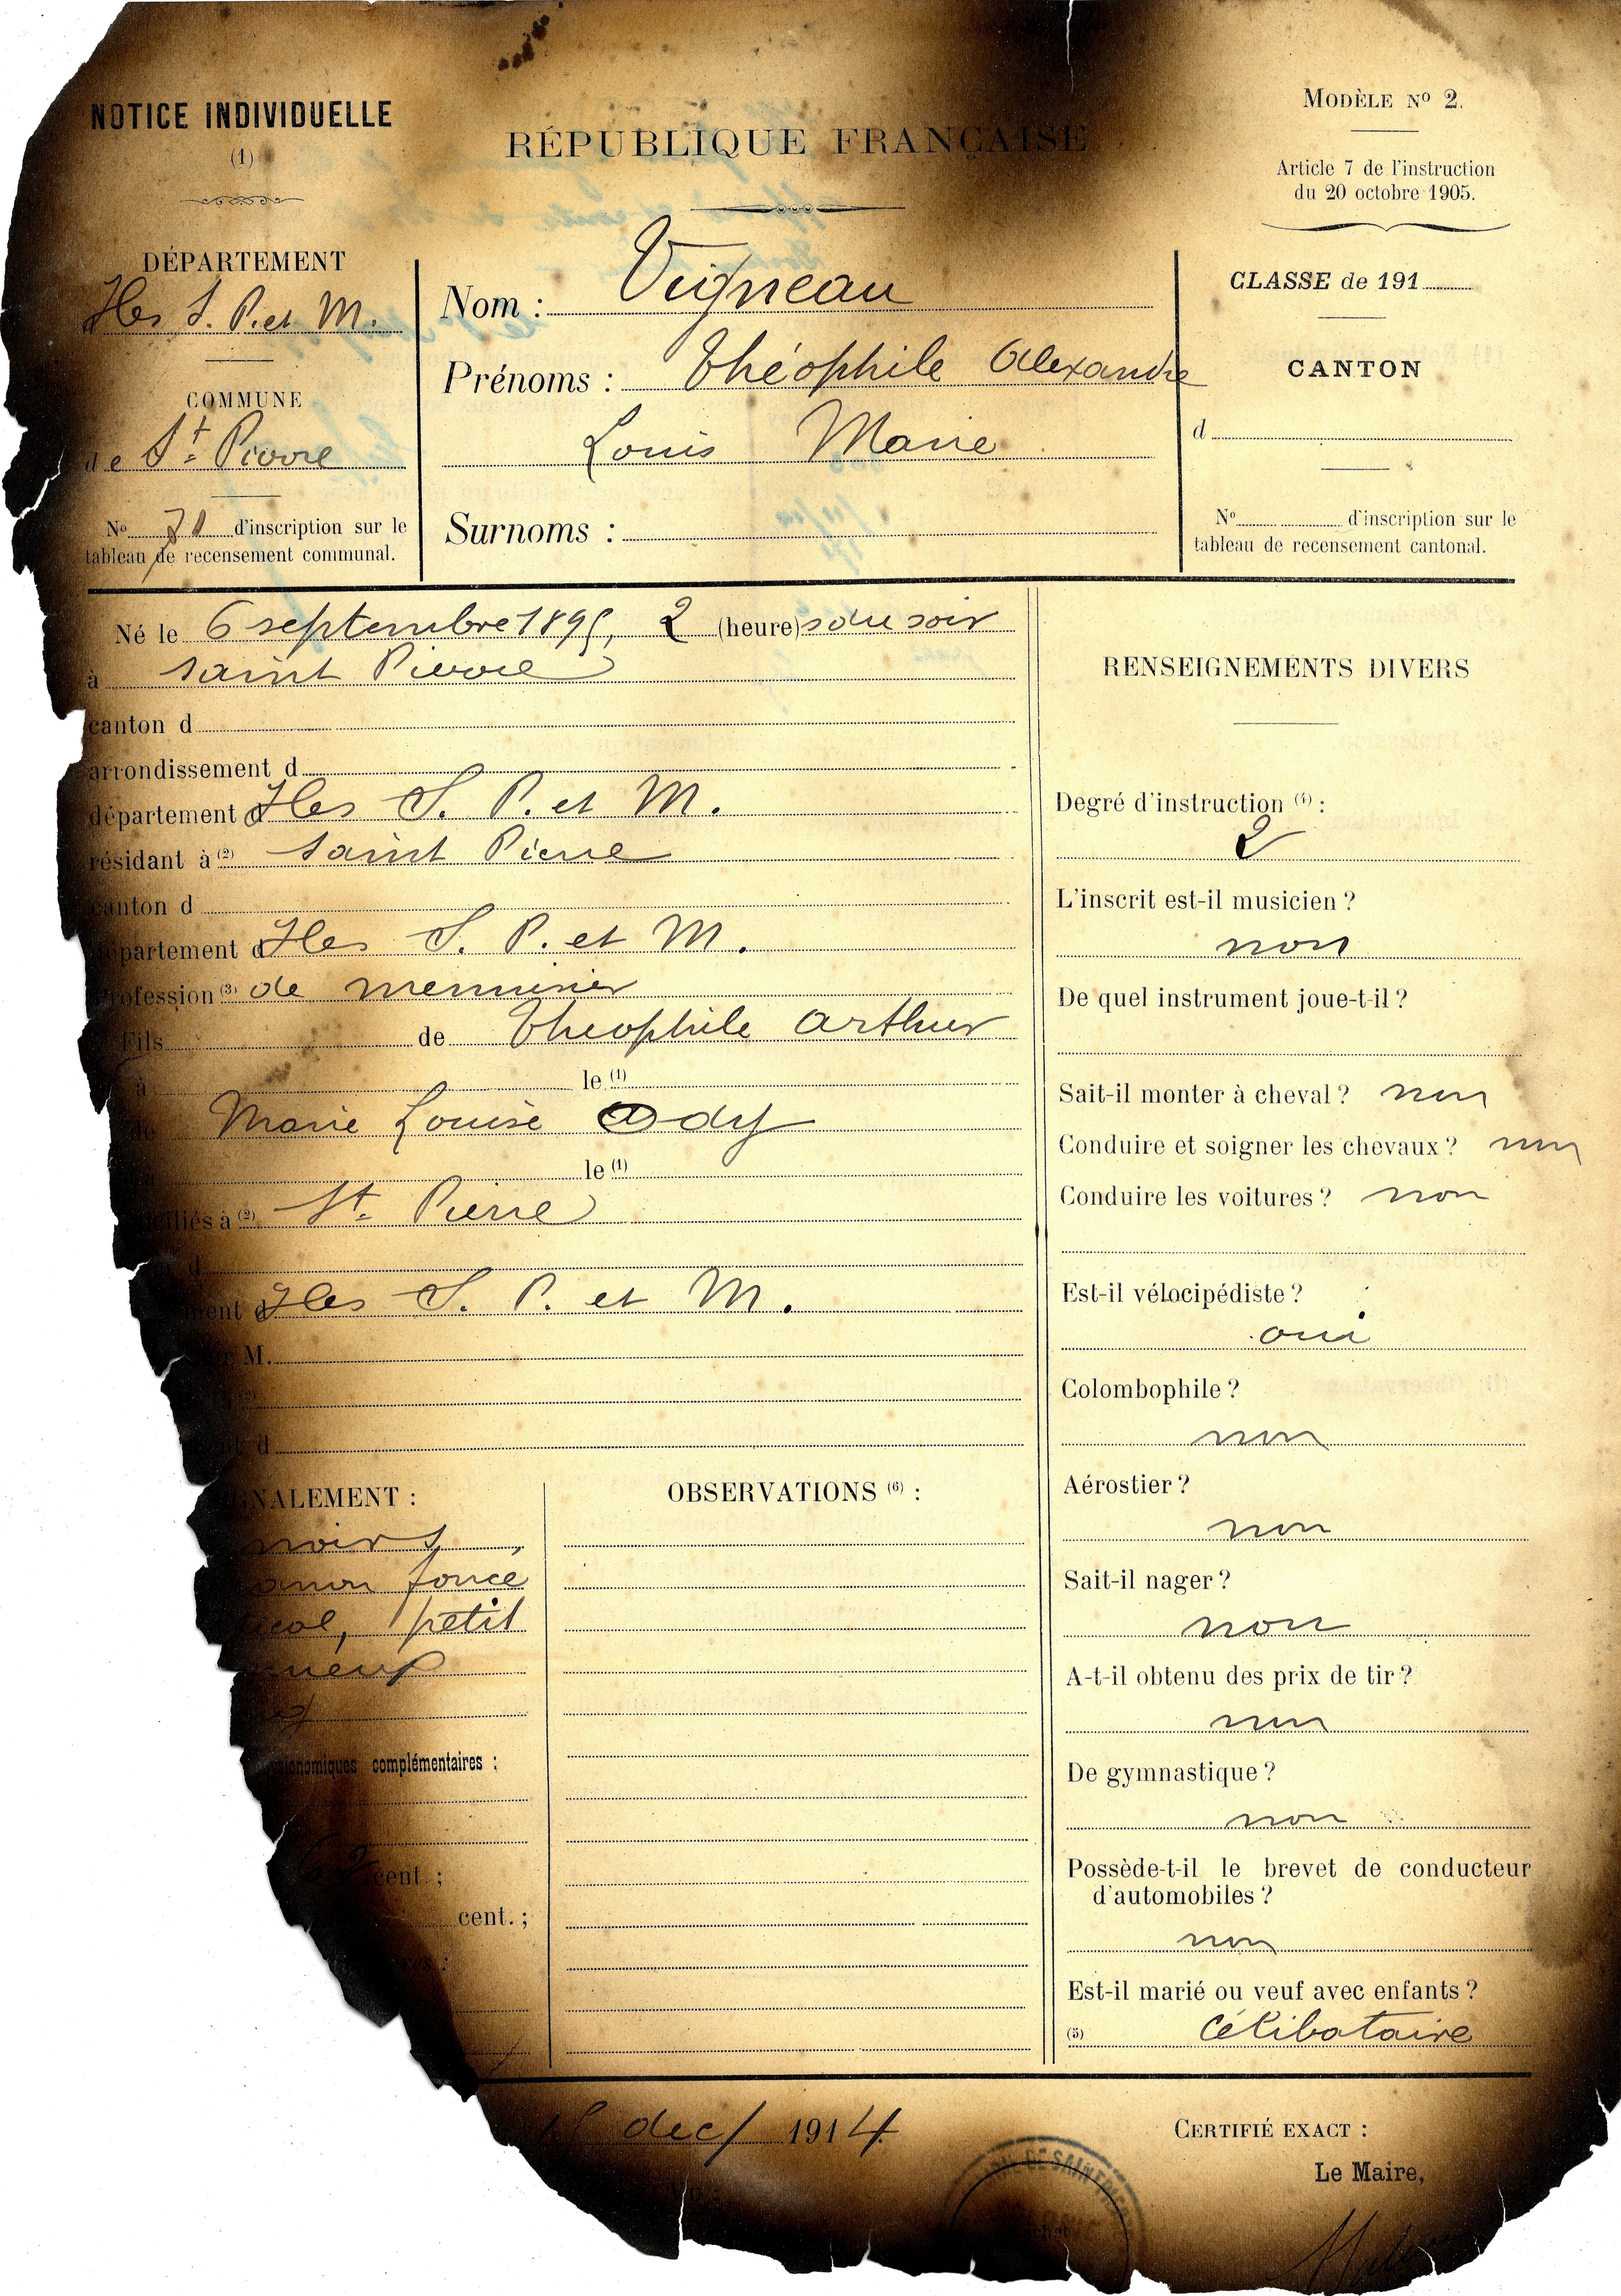 NOTICE INDIVIDUELLE
(1)
RÉPUBLIQUE FRANÇAISE
MODÈLE Nº 2.
Article 7 de l'instruction
du 20 octobre 1905.
DÉPARTEMENT
Iles S. P. et M.
COMMUNE
de St Pierre
Nº d'inscription sur le
tableau de recensement communal.
Nom : Vigneau
Prénoms : Théophile Alexandre
Louis Marie
Surnoms :
CLASSE de 191
CANTON
d
Nº d'inscription sur le
tableau de recensement cantonal.
Né le 6 septembre 1895, 2 (heure)s du soir
à saint Pierre
canton d
arrondissement d
département d Iles S. P. et M.
résidant à (2) saint Pierre
canton d
département d Iles S. P. et M.
profession (3) de menuisier
Fils de Théophile Arthur
à le (1)
de Marie Louise Ody
le (1)
ciliés à (2) St Pierre
d
ment d Iles S. P. et M.
M.
d
GNALEMENT :
noirs,
foncé
tical, petit
nomiques complémentaires :
62 cent. ;
cent. ;
OBSERVATIONS (6) :
RENSEIGNEMENTS DIVERS
Degré d'instruction (4) :
2
L'inscrit est-il musicien ?
non
De quel instrument joue-t-il ?
Sait-il monter à cheval ? non
Conduire et soigner les chevaux ? non
Conduire les voitures ? non
Est-il vélocipédiste ?
oui
Colombophile ?
non
Aérostier ?
non
Sait-il nager ?
non
A-t-il obtenu des prix de tir ?
non
De gymnastique ?
non
Possède-t-il le brevet de conducteur
d'automobiles ?
non
Est-il marié ou veuf avec enfants ?
(5) célibataire
15 dec/ 1914
CERTIFIÉ EXACT :
Le Maire,